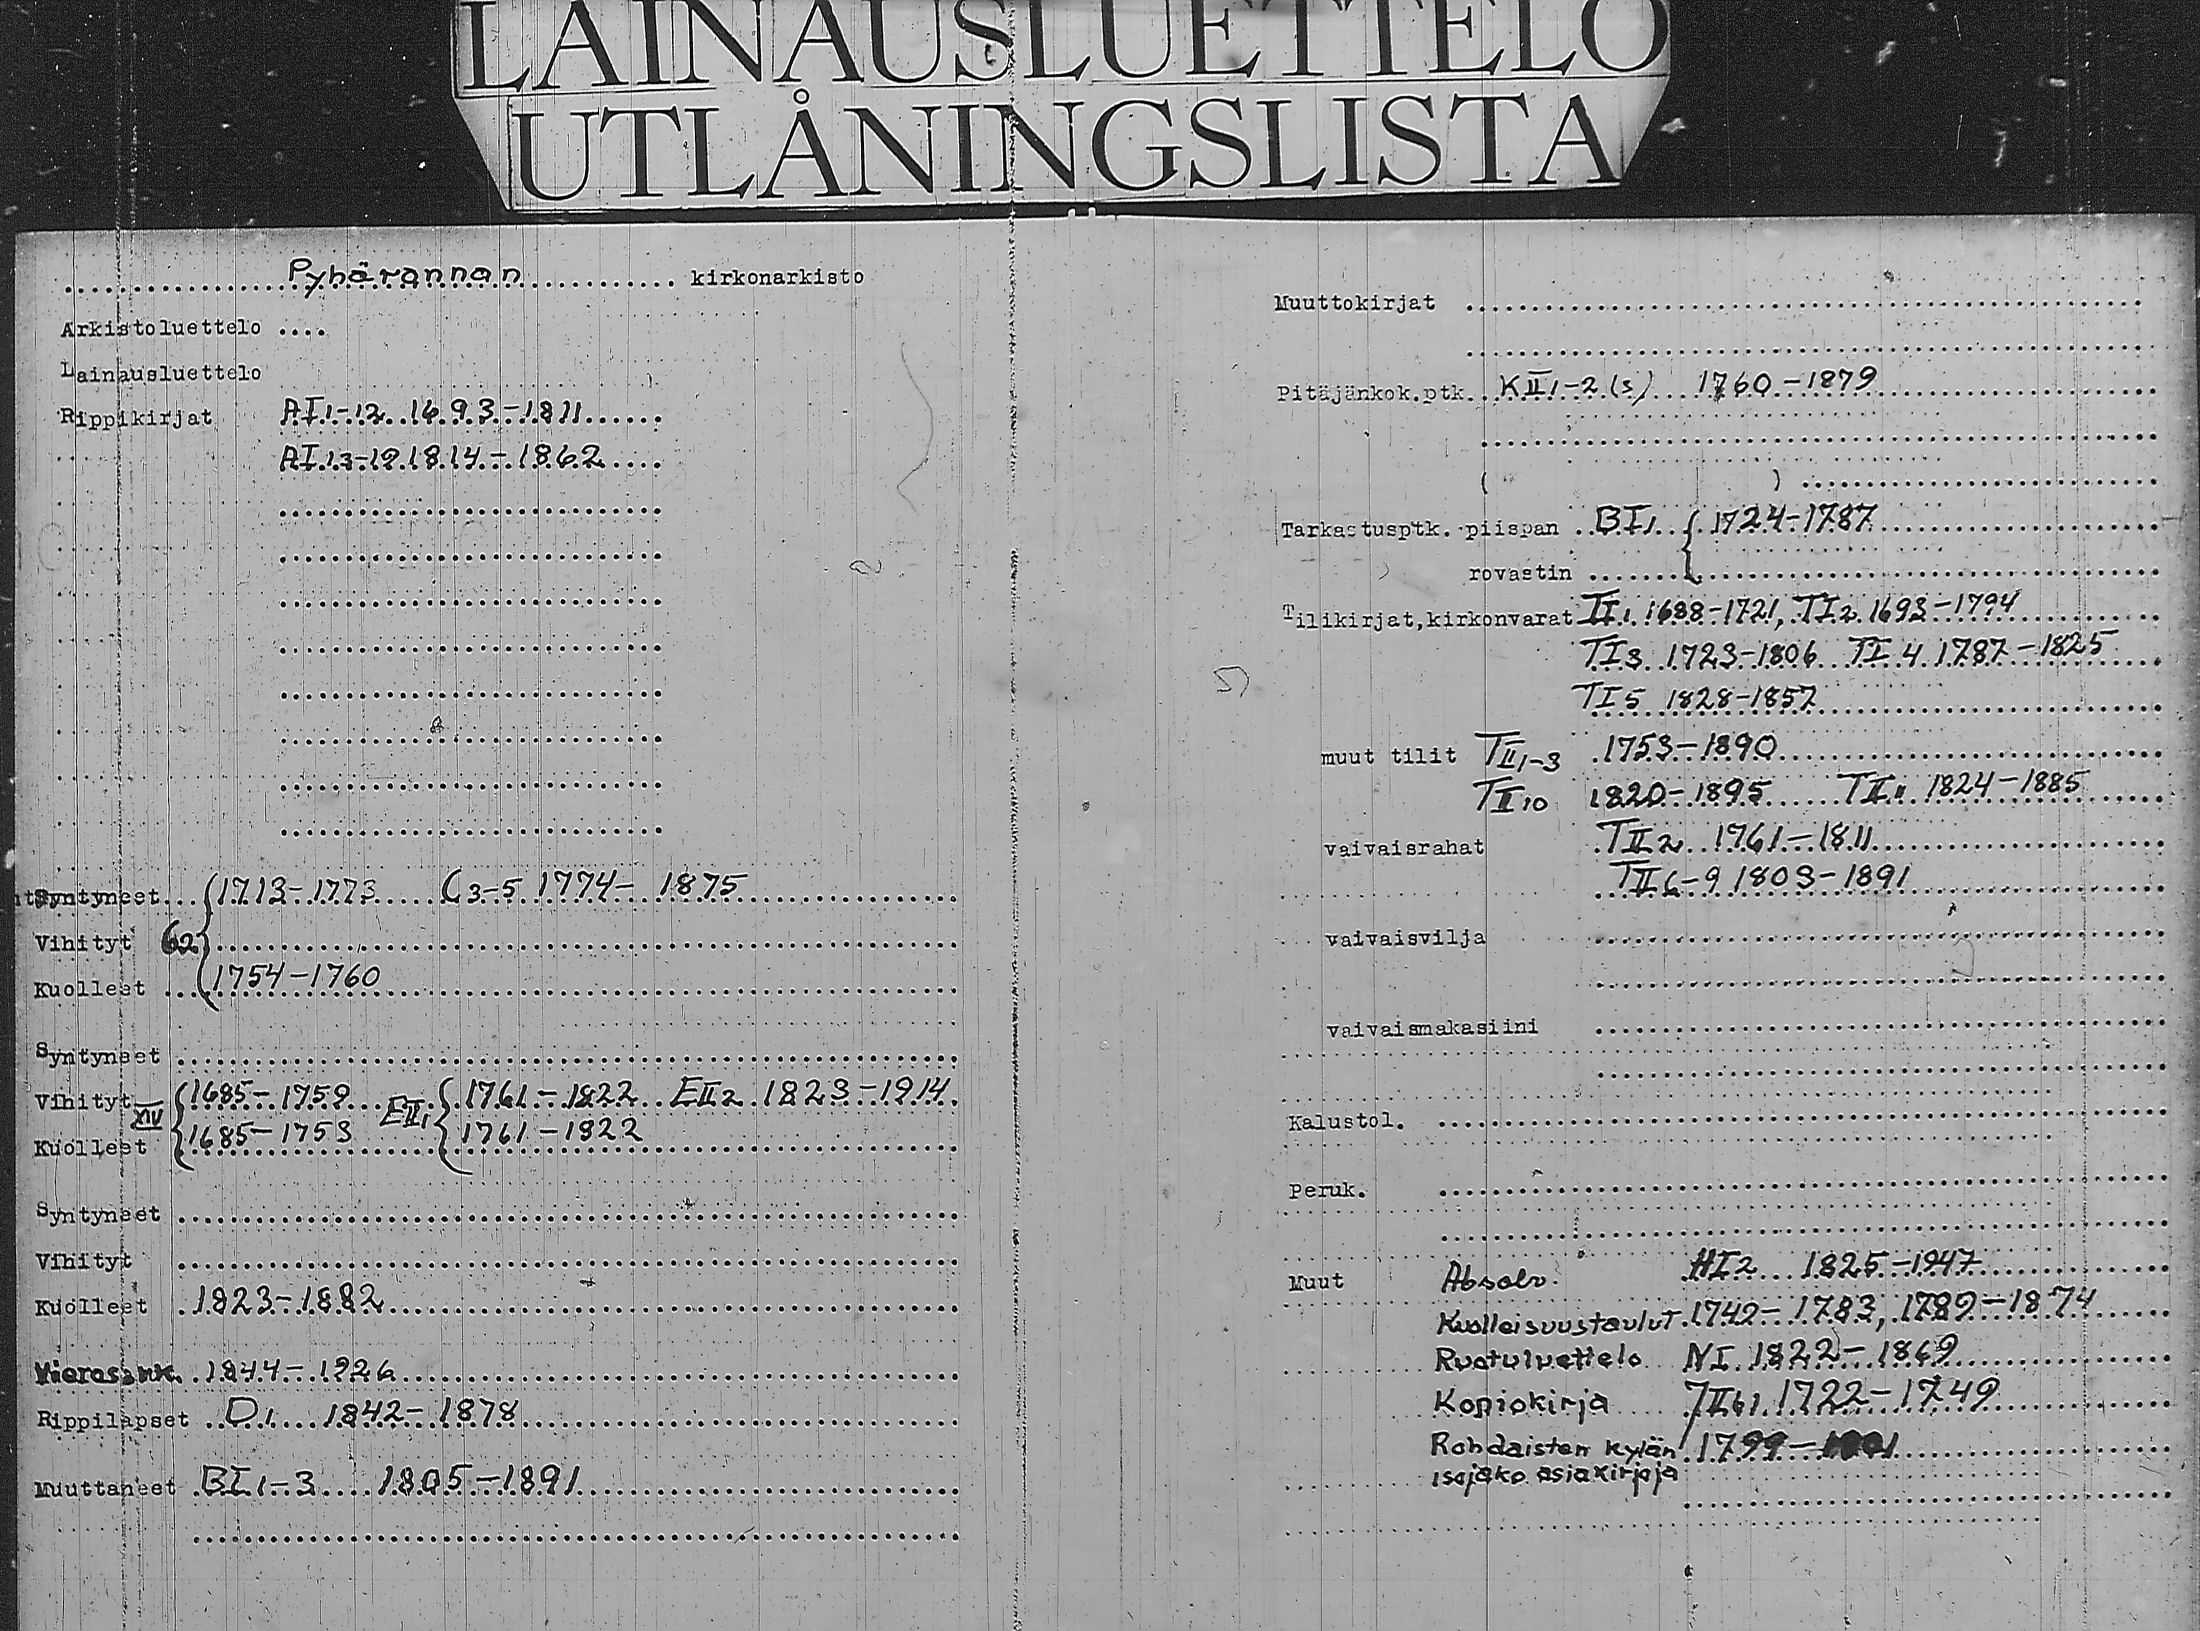 LAINAUSLUETTELO
UTLÅNINGSLISTA
Pyhärannan kirkonarkisto
Arkistoluettelo ....
Lainausluettelo
Rippikirjat AI 1-12 1693-1811
AI 13-19 1814-1862
Syntyneet 1713-1773 C3-5 1774-1875
Vihityt 62
Kuolleet 1754-1760
Syntyneet
Vihityt 1685-1759 EII1 1761-1822 EII2 1823-1914
XIV
Kuolleet 1685-1753 1761-1822
Syntyneet
Vihityt
Kuolleet 1823-1882
1844-1926
Rippilapset D1 1842-1878
Muuttaneet BI 1-3 1805-1891
Muuttokirjat
Pitäjänkok.ptk. KII1-2(s) 1760-1879
( )
Tarkastusptk. piispan BI1 1724-1787
rovastin
Tilikirjat, kirkonvarat TI1 1688-1721, TI2 1693-1794
TI3 1723-1806 TI4 1787-1825
TI5 1828-1857
muut tilit TII1-3 1753-1890
TII10 1820-1895 TII11 1824-1885
vaivaisrahat TII2 1761-1811
TII6-9 1803-1891
vaivaisvilja
vaivaismakasiini
Kalustol.
Peruk.
Muut Absolv. HI2 1825-1947
Kuolleisuustaulut 1749-1783, 1789-1874
Ruotuluettelo NI 1822-1869
Kopiokirja JII61 1722-1749
Rohdaisten kylän 1799-
isojako asiakirjoja